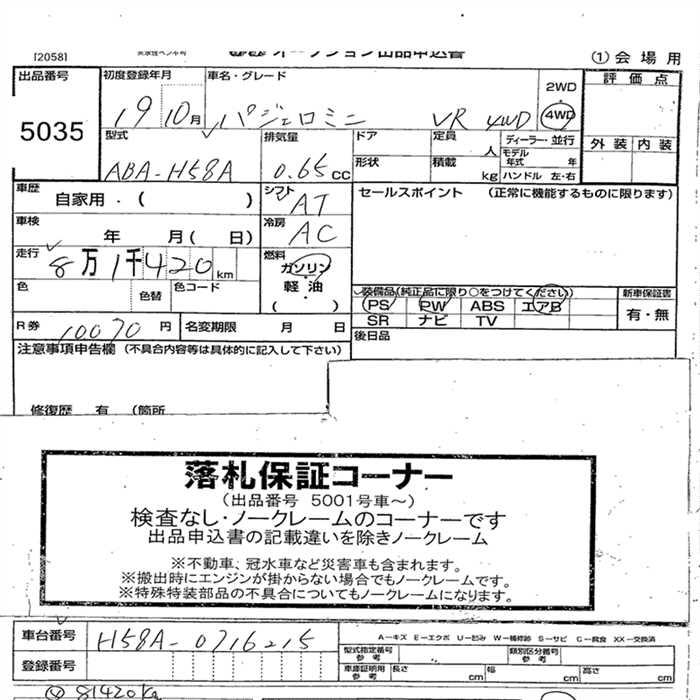 [2058] オークション出品申込書 ①会場用
出品番号 5035
初度登録年月 19 10月
車名・グレード パジェロミニ VR 4WD
2WD 4WD
評価点
外装 内装
型式 ABA-H58A
排気量 0.65 CC
ドア 定員 人
形状 積載 kg
ディーラー・並行
モデル年式 年
ハンドル 左・右
車歴 自家用・( )
シフト AT
セールスポイント (正常に機能するものに限ります)
車検 年 月( 日)
冷房 AC
走行 8万1千420km
燃料 ガソリン 軽・油 ( )
色 色替 色コード
装備品(純正品に限り○をつけてください)
PS PW ABS エアB
SR ナビ TV
新車保証書 有・無
R券 10070円
名変期限 月 日
後日品
注意事項申告欄 (不具合内容等は具体的に記入して下さい)
修復歴 有 (箇所
落札保証コーナー
(出品番号 5001号車～)
検査なし・ノークレームのコーナーです
出品申込書の記載違いを除きノークレーム
※不動車、冠水車など災害車も含まれます。
※搬出時にエンジンが掛からない場合でもノークレームです。
※特殊特装部品の不具合についてもノークレームになります。
車台番号 H58A-0716215
A-キズ E-エクボ U-凹み W-補修跡 S-サビ C-腐食 XX-交換済
登録番号
型式指定番号 参考 類別区分番号 参考
車庫証明用 参考 長さ cm 幅 cm 高さ cm
81420Km